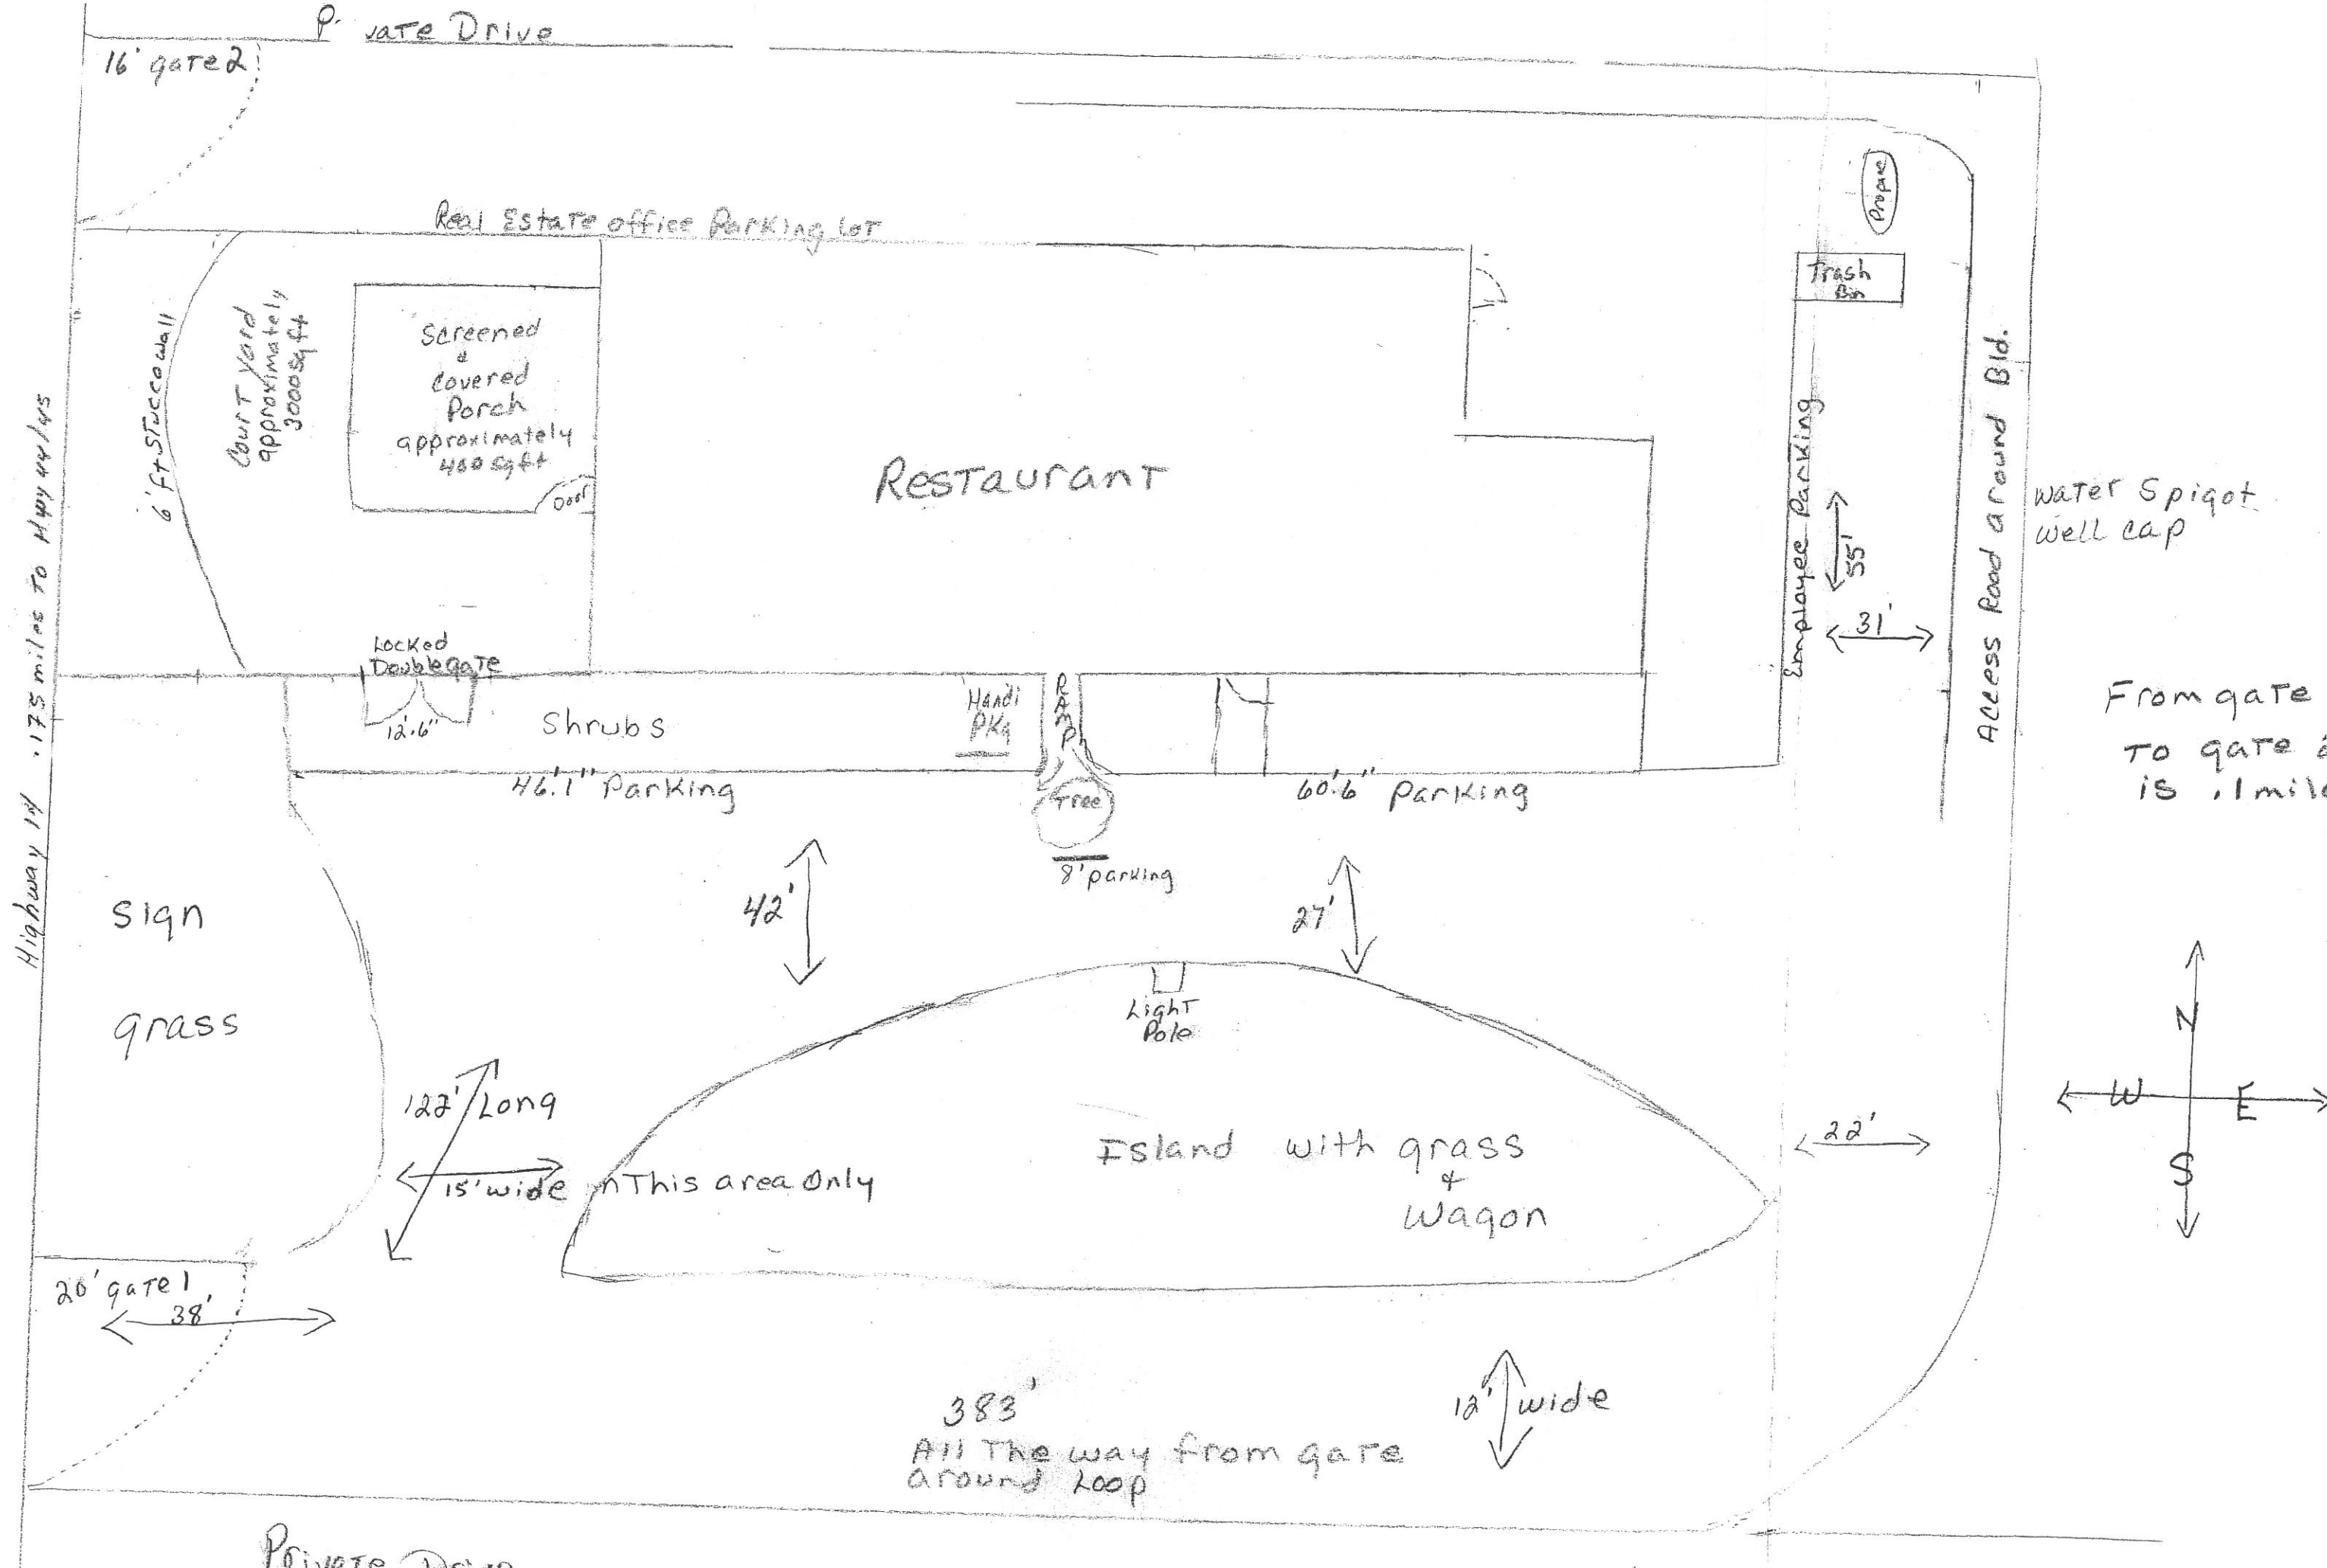 P. vate Drive
16' gate 2
Real Estate office Parking Lot
Propane
Trash
Bin
6' ft Stucco wall
Court Yard
approximately
3000 sq ft
Screened
&
Covered
Porch
approximately
400 sq ft
Door
Restaurant
Employee Parking
55'
31'
Access Road around Bld.
Water Spigot
Well cap
Highway 14 .175 miles to Hwy 44/45
Locked
Double gate
12'.6"
Shrubs
Handi
PKg
RAMP
46'.1" Parking
Tree
60'.6" Parking
8' parking
From gate
To gate 2
is .1 mile
Sign
grass
42'
27'
Light
Pole
122' Long
15' wide in This area Only
Island with grass
&
Wagon
22'
N
W
E
S
20' gate 1
38'
383'
All The way from gate
around Loop
12' wide
Private Drive